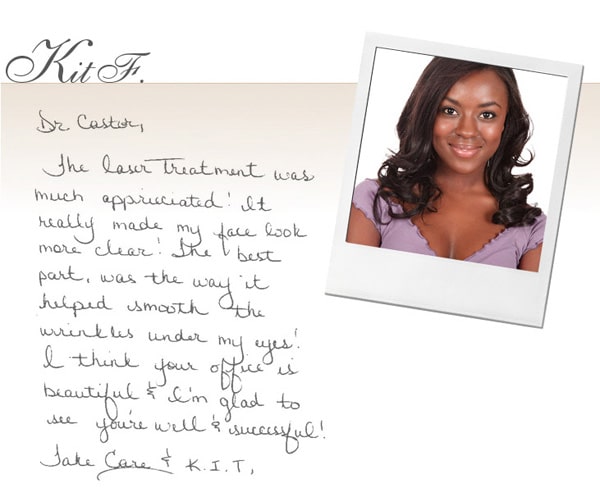 Kit F.
Dr Castor,
The laser Treatment was
much appriciated! It
really made my face look
more clear! The best
part, was the way it
helped smooth the
wrinkles under my eyes!
I think your office is
beautiful & I'm glad to
see you're well & successful!
Take Care & K.I.T,